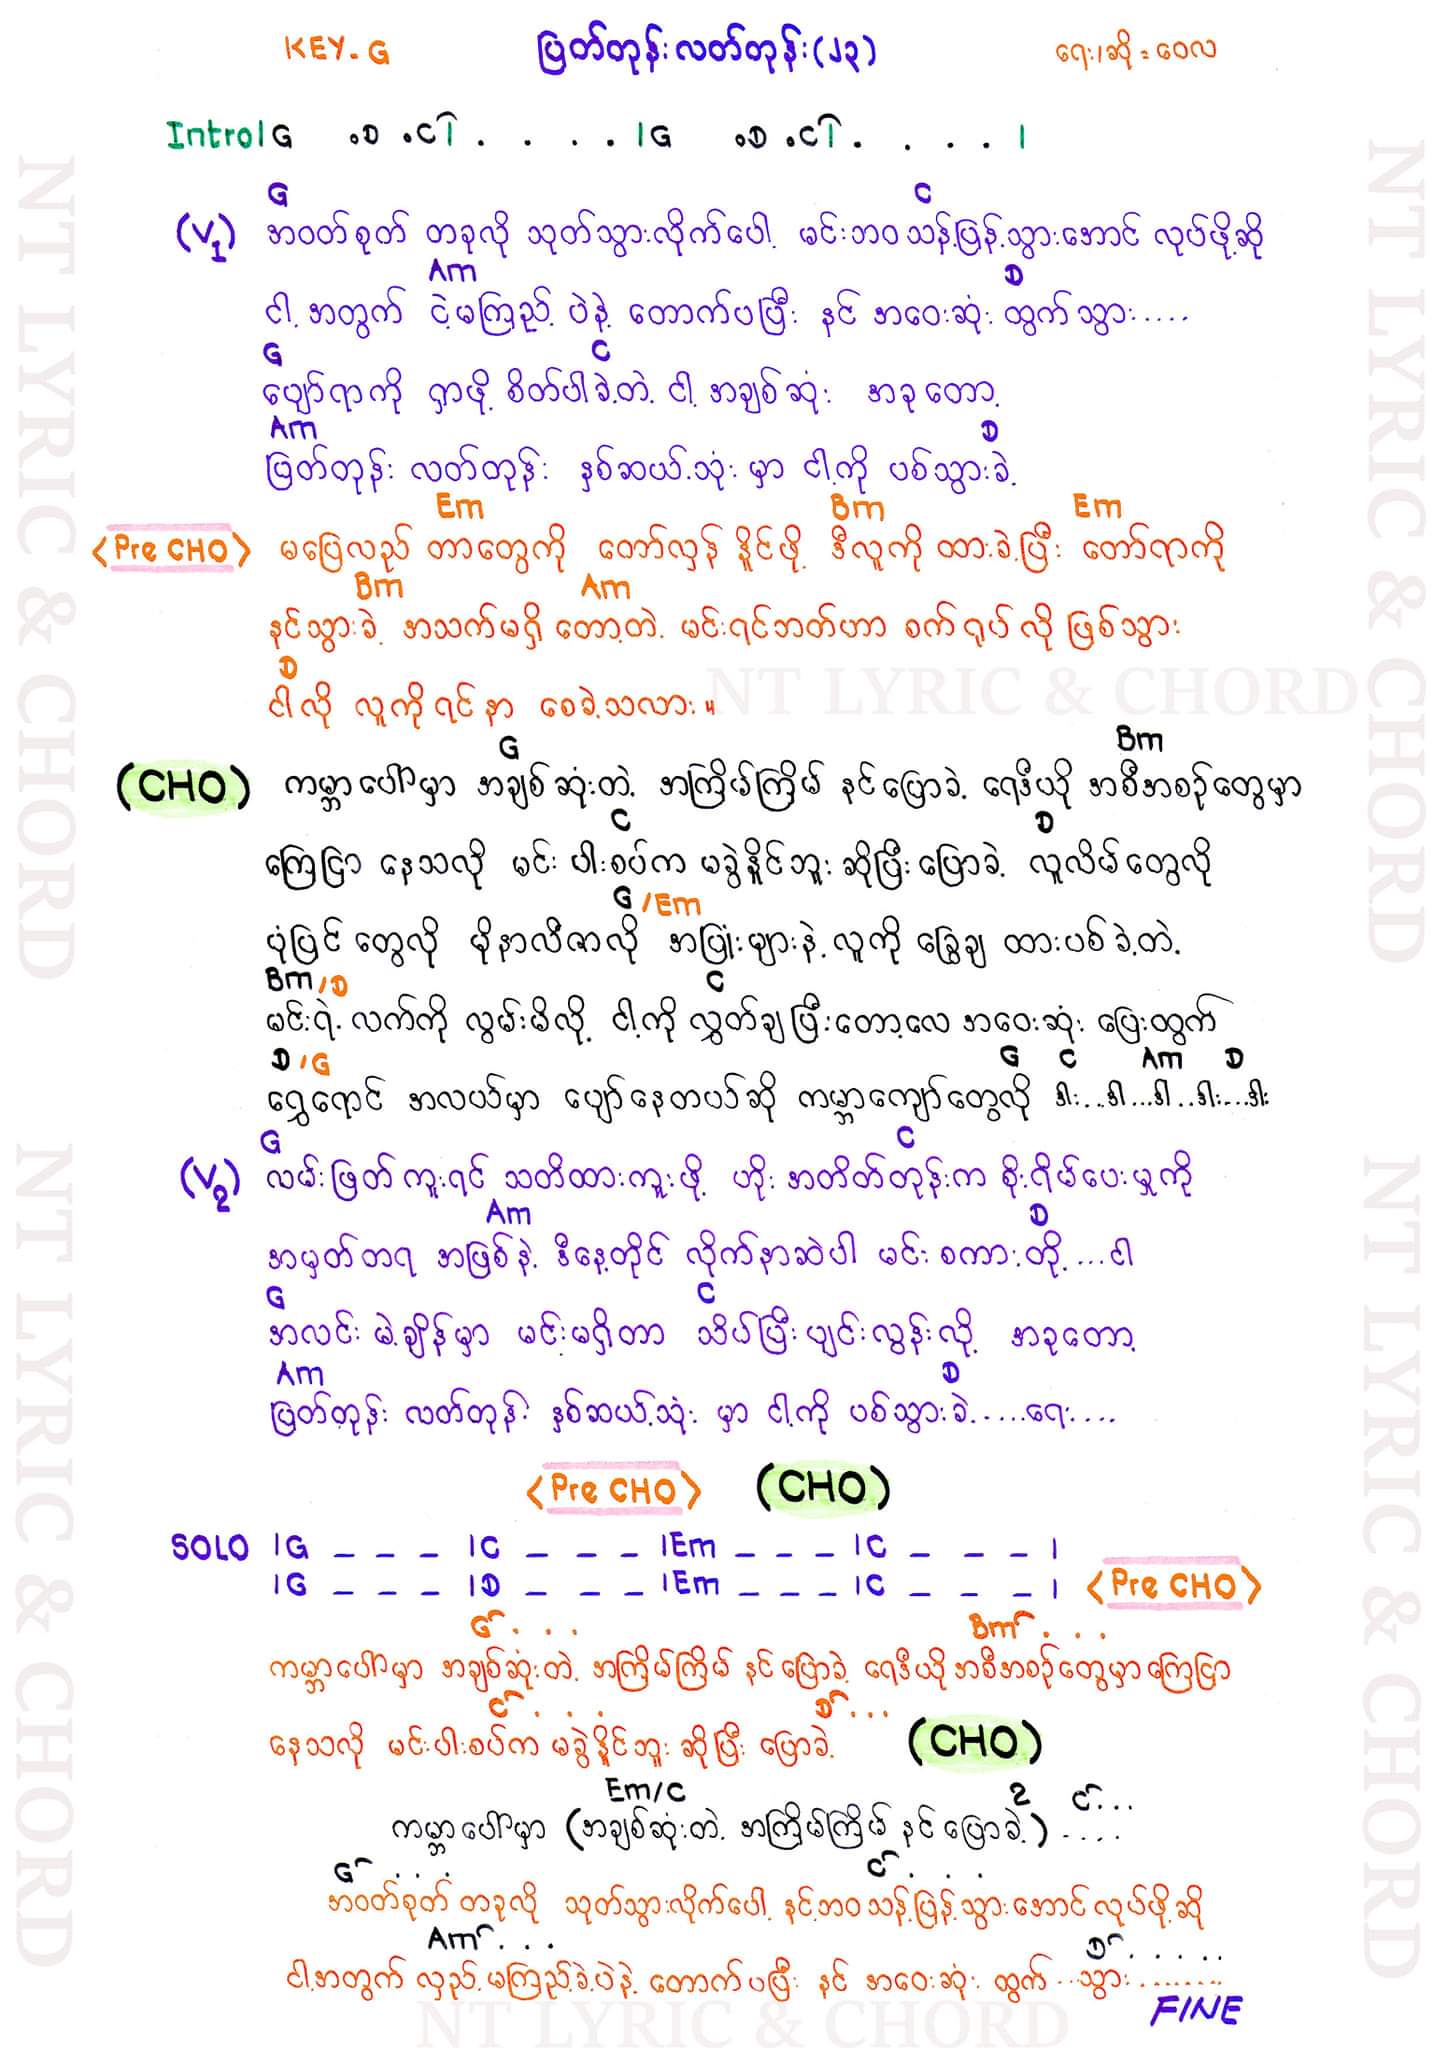 KEY-G ဖြတ်တုန်းလတ်တုန်း(၂၃) ရေး/ဆို = ဝေလ
Intro|G .D .C| . . . . |G .D .C| . . . . |
G C
(V1) အဝတ်စုတ် တခုလို သုတ်သွားလိုက်ပေါ့ မင်းဘဝသန့်ပြန့်သွားအောင် လုပ်ဖို့ဆို
Am D
ငါ့အတွက် ငဲ့မကြည့် ပဲနဲ့ တောက်ပပြီး နင် အဝေးဆုံး ထွက်သွား.....
G C
ပျော်ရာကို ရှာဖို့ စိတ်ပါခဲ့တဲ့ ငါ့အချစ်ဆုံး အခုတော့
Am D
ဖြတ်တုန်း လတ်တုန်း နှစ်ဆယ့်သုံး မှာ ငါ့ကို ပစ်သွားခဲ့
Em Bm Em
<Pre CHO> မပြေလည် တာတွေကို တော်လှန် နိူင်ဖို့ ဒီလူကို ထားခဲ့ပြီး တော်ရာကို
Bm Am
နင်သွားခဲ့ အသက်မရှိ တော့တဲ့ မင်းရင်ဘတ်ဟာ စက်ရုပ်လို ဖြစ်သွား
D
ငါလို လူကိုရင်နာ စေခဲ့သလား။
G Bm
(CHO) ကမ္ဘာပေါ်မှာ အချစ်ဆုံးတဲ့ အကြိမ်ကြိမ် နင်ပြောခဲ့ ရေဒီယို အစီအစဉ်တွေမှာ
C D
ကြေငြာ နေသလို မင်း ပါးစပ်က မခွဲနိူင်ဘူး ဆိုပြီးပြောခဲ့ လူလိမ်တွေလို
G/Em
ပုံပြင်တွေလို မိုနာလီဇာလို အပြုံးများနဲ့ လူကို ခြွေချ ထားပစ်ခဲ့တဲ့
Bm/D C
မင်းရဲ့ လက်ကို လွမ်းမိလို့ ငါ့ကို လွှတ်ချပြီးတော့လေ အဝေးဆုံး ပြေးထွက်
D/G G C Am D
ရွှေရောင် အလယ်မှာ ပျော်နေတယ်ဆို ကမ္ဘာကျော်တွေလို ဒါး...ဒါ...ဒါ...ဒါး...ဒါး
G C
(V2) လမ်းဖြတ်ကူးရင် သတိထားကူးဖို့ ဟိုး အတိတ်တုန်းက စိုးရိမ်ပေးမှုကို
Am D
အမှတ်တရ အဖြစ်နဲ့ ဒီနေ့တိုင် လိုက်နာဆဲပါ မင်း စကားတို့...ငါ
G C
အလင်းမဲ့ချိန်မှာ မင်းမရှိတာ သိပ်ပြီးပျင်းလွန်းလို့ အခုတော့
Am D
ဖြတ်တုန်း လတ်တုန်း နှစ်ဆယ့်သုံး မှာ ငါ့ကို ပစ်သွားခဲ့.....ရေး....
<Pre CHO> (CHO)
SOLO |G _ _ _ |C _ _ _ |Em _ _ _ |C _ _ _ |
|G _ _ _ |D _ _ _ |Em _ _ _ |C _ _ _ | <Pre CHO>
G . . . Bm . . .
ကမ္ဘာပေါ်မှာ အချစ်ဆုံးတဲ့ အကြိမ်ကြိမ် နင်ပြောခဲ့ ရေဒီယိုအစီအစဉ်တွေမှာကြေငြာ
C . . . D . . .
နေသလို မင်းပါးစပ်က မခွဲနိူင်ဘူး ဆိုပြီး ပြောခဲ့ (CHO)
Em/C 2 C...
ကမ္ဘာပေါ်မှာ (အချစ်ဆုံးတဲ့ အကြိမ်ကြိမ် နင်ပြောခဲ့) ....
G . . . C . . .
အဝတ်စုတ် တခုလို သုတ်သွားလိုက်ပေါ့ နင့်ဘဝသန့်ပြန့်သွားအောင် လုပ်ဖို့ဆို
Am . . . D . . . . .
ငါ့အတွက် လှည့်မကြည့်ခဲ့ပဲနဲ့ တောက်ပပြီး နင် အဝေးဆုံး ထွက်...သွား.........
FINE
NT LYRIC & CHORD
NT LYRIC & CHORD
NT LYRIC & CHORD
NT LYRIC & CHORD
NT LYRIC & CHORD
NT LYRIC & CHORD